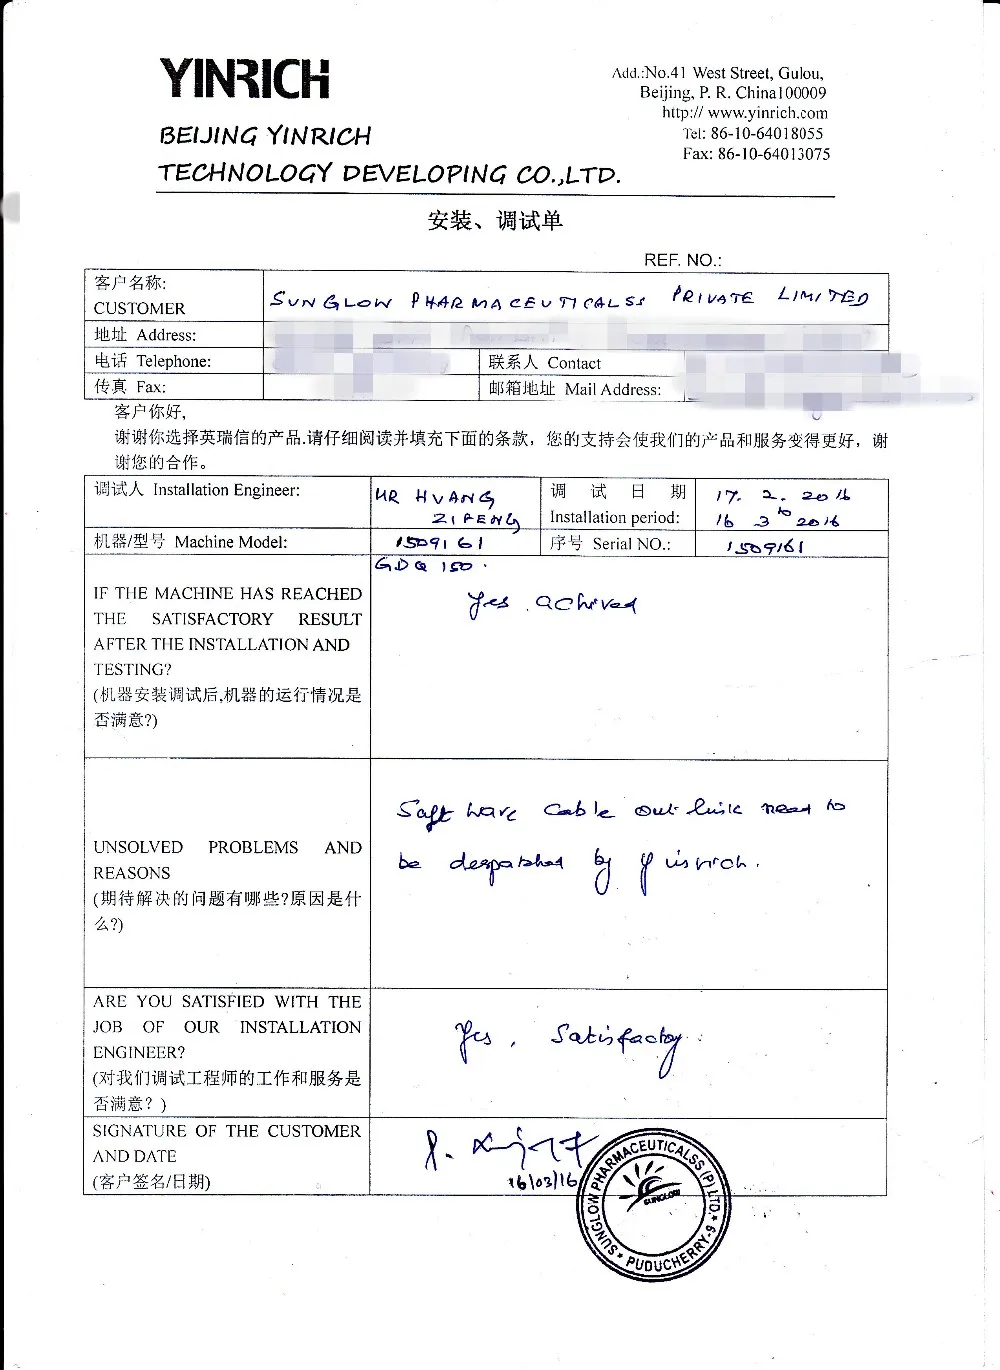 YINRICH
BEIJING YINRICH
TECHNOLOGY DEVELOPING CO.,LTD.
Add.:No.41 West Street, Gulou,
Beijing, P. R. China100009
http:// www.yinrich.com
Tel: 86-10-64018055
Fax: 86-10-64013075
安装、调试单
REF. NO.:
客户名称:
CUSTOMER
SUNGLOW PHARMACEUTICALSS PRIVATE LIMITED
地址 Address:
电话 Telephone:
联系人 Contact
传真 Fax:
邮箱地址 Mail Address:
客户你好,
谢谢你选择英瑞信的产品.请仔细阅读并填充下面的条款，您的支持会使我们的产品和服务变得更好，谢
谢您的合作。
调试人 Installation Engineer:
MR HUANG
ZIFENG
调 试 日 期
Installation period:
17. 2. 2016
to
16 3 2016
机器/型号 Machine Model:
1509161
序号 Serial NO.:
1509161
GDQ 150.
IF THE MACHINE HAS REACHED
THE SATISFACTORY RESULT
AFTER THE INSTALLATION AND
TESTING?
(机器安装调试后,机器的运行情况是
否满意?)
Yes, achived
UNSOLVED PROBLEMS AND
REASONS
(期待解决的问题有哪些?原因是什
么?)
Soft ware cable out link need to
be despatched by Yinrich.
ARE YOU SATISFIED WITH THE
JOB OF OUR INSTALLATION
ENGINEER?
(对我们调试工程师的工作和服务是
否满意？)
Yes, Satisfactoy.
SIGNATURE OF THE CUSTOMER
AND DATE
(客户签名/日期)
16/03/16
SUNGLOW PHARMACEUTICALSS (P) LTD. * PUDUCHERRY-9 *
SUNGLOW